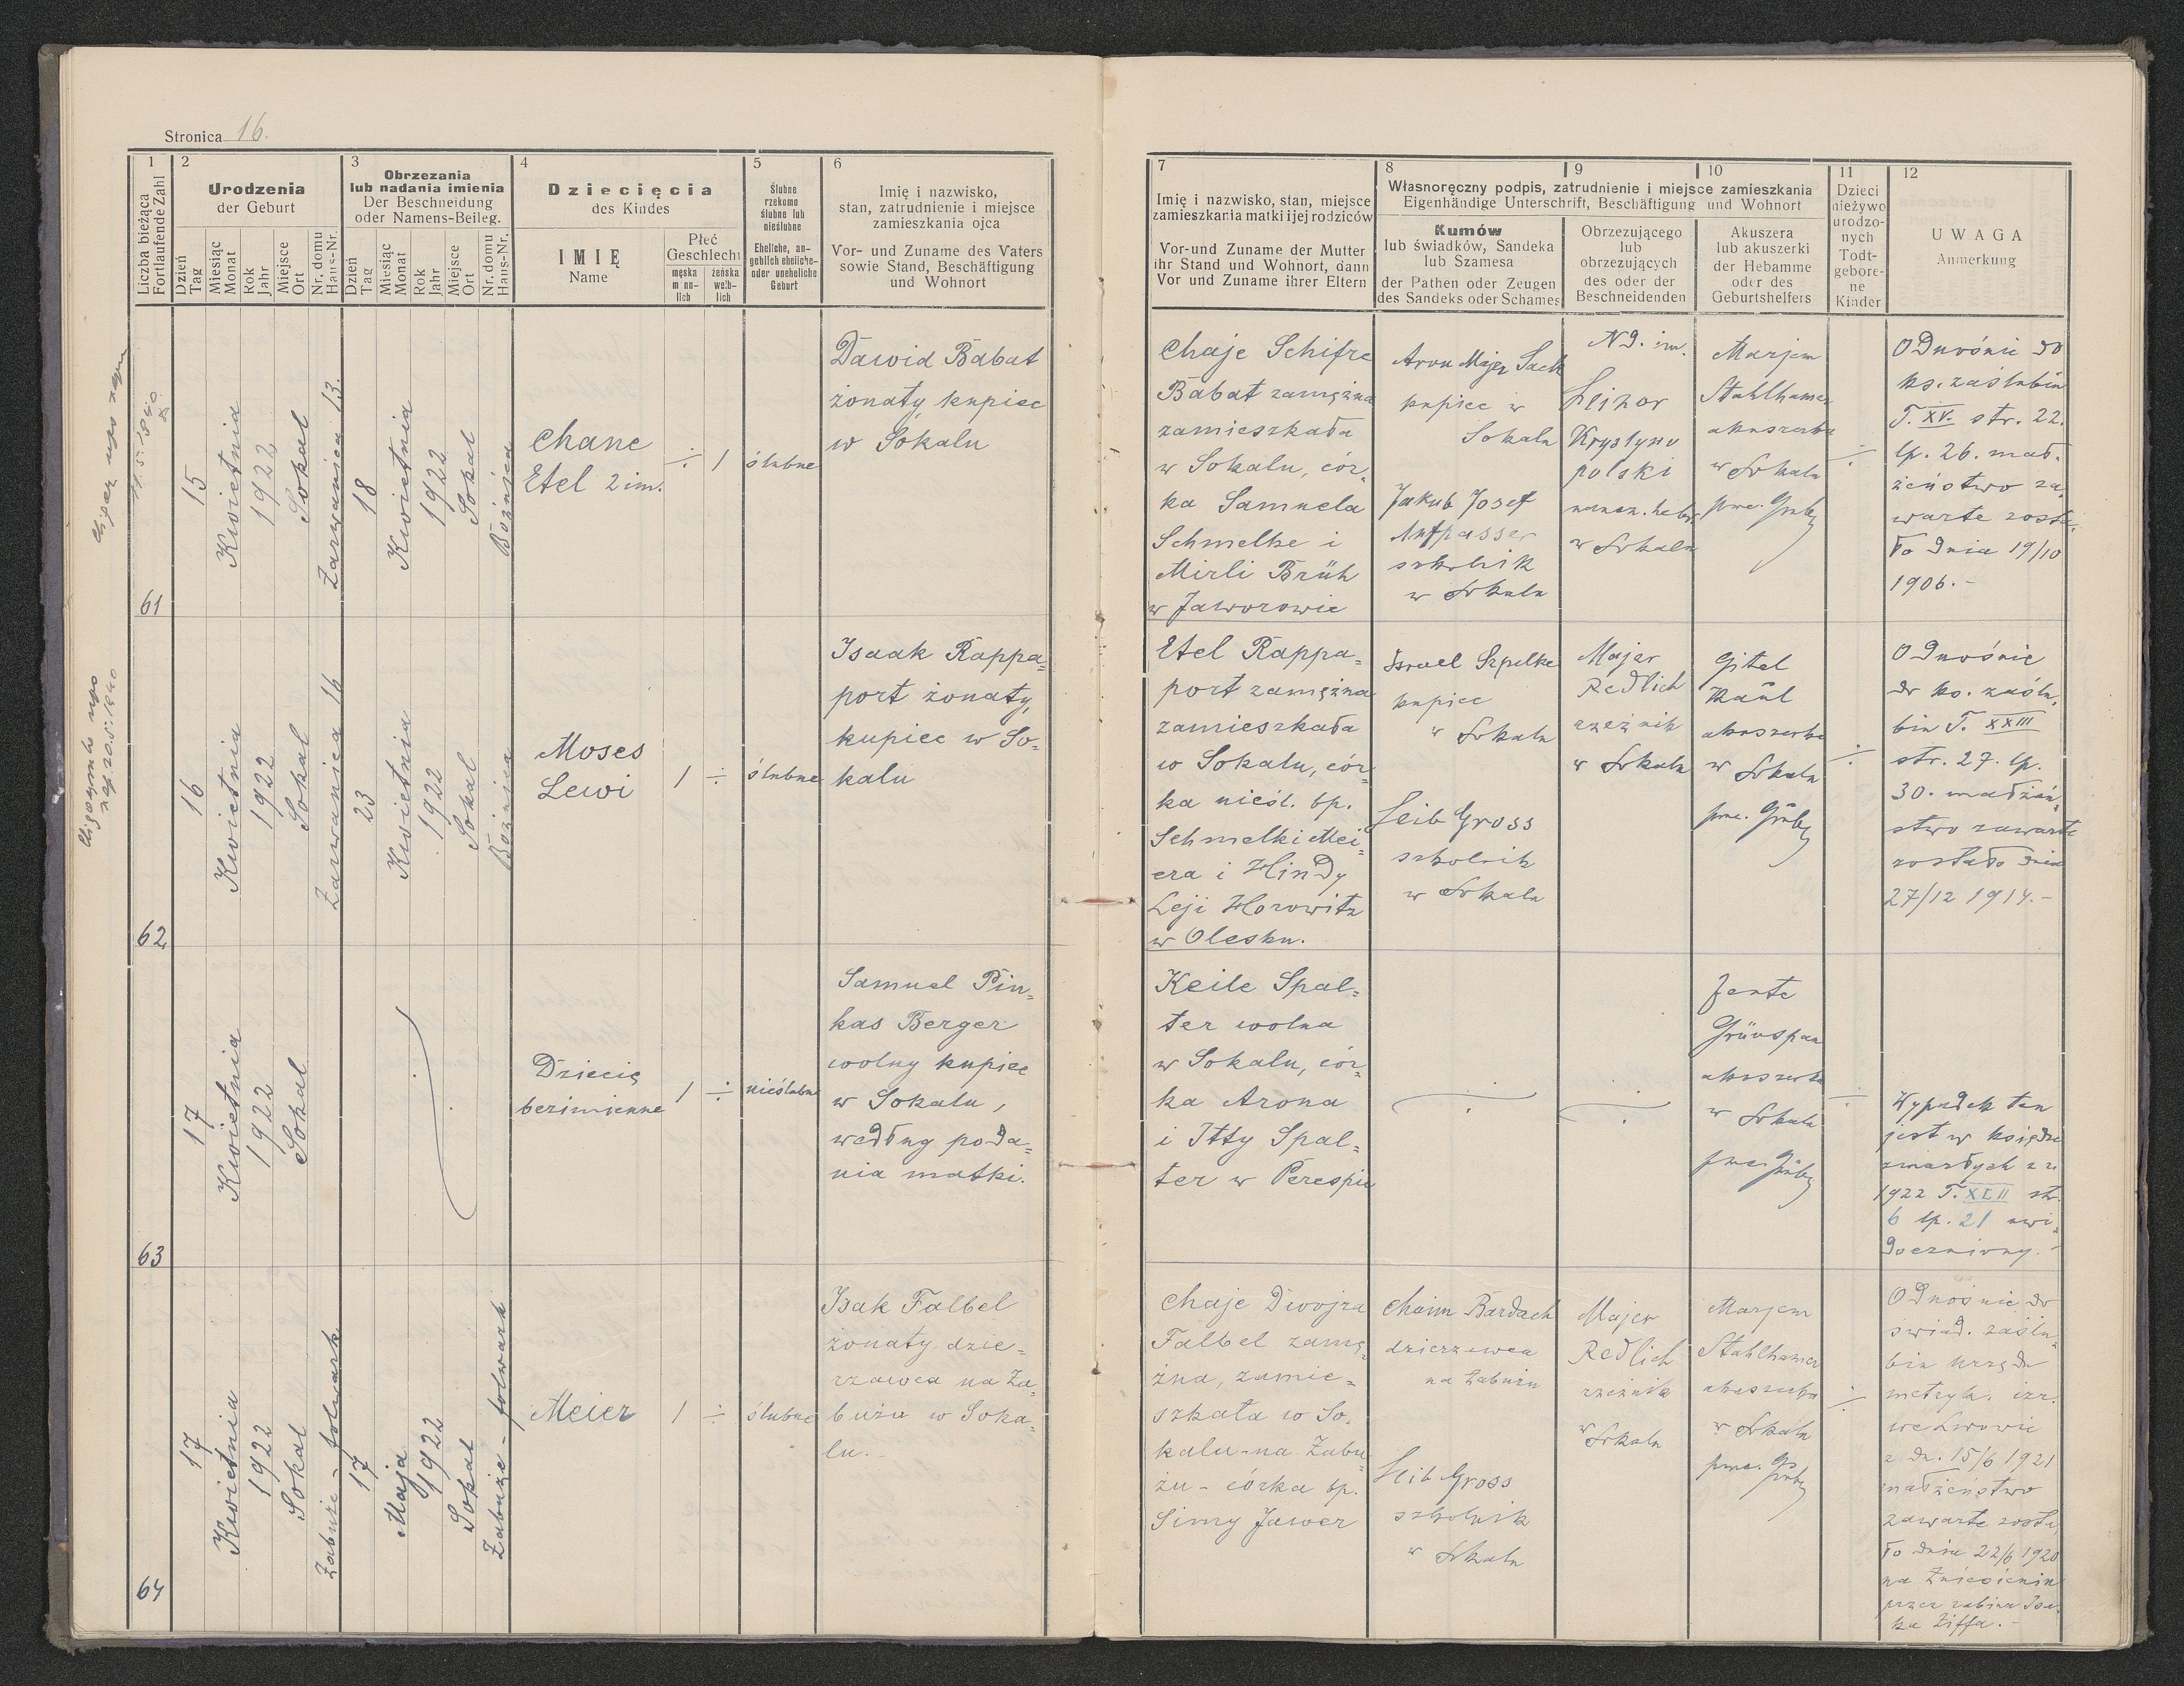 Stronica 16.
1
Liczba bieżąca
Fortlaufende Zahl
2
Urodzenia
der Geburt
Dzień
Tag
Miesiąc
Monat
Rok
Jahr
Miejsce
Ort
Nr. domu
Haus-Nr.
3
Obrzezania
lub nadania imienia
Der Beschneidung
oder Namens-Beileg.
Dzień
Tag
Miesiąc
Monat
Rok
Jahr
Miejsce
Ort
Nr. domu
Haus-Nr.
4
Dziecięcia
des Kindes
IMIĘ
Name
Płeć
Geschlecht
męska
männ-
lich
żeńska
weib-
lich
5
Ślubne
rzekomo
ślubne lub
nieślubne
Eheliche, an-
geblich eheliche-
oder uneheliche
Geburt
6
Imię i nazwisko,
stan, zatrudnienie i miejsce
zamieszkania ojca
Vor- und Zuname des Vaters
sowie Stand, Beschäftigung
und Wohnort
7
Imię i nazwisko, stan, miejsce
zamieszkania matki i jej rodziców
Vor-und Zuname der Mutter
ihr Stand und Wohnort, dann
Vor und Zuname ihrer Eltern
8
9
10
Własnoręczny podpis, zatrudnienie i miejsce zamieszkania
Eigenhändige Unterschrift, Beschäftigung und Wohnort
Kumów
lub świadków, Sandeka
lub Szamesa
der Pathen oder Zeugen
des Sandeks oder Schames
Obrzezującego
lub
obrzezujących
des oder der
Beschneidenden
Akuszera
lub akuszerki
der Hebamme
oder des
Geburtshelfers
11
Dzieci
nieżywo
urodzo-
nych
Todt-
gebore-
ne
Kinder
12
UWAGA
Anmerkung
61
15
Kwietnia
1922
Sokal
Zarwanica 13.
18
Kwietnia
1922
Sokal
Bożnica
Chane
Etel 2 im.
÷ 1
ślubne
Dawid Babat
żonaty, kupiec
w Sokalu
Chaje Schifre
Babat zamężna
zamieszkała
w Sokalu, cór-
ka Samuela
Schmelke i
Mirli Brüh
w Jaworowie
Aron Majer Sack
kupiec w
Sokalu
Jakub Josef
Aufpasser
szkolnik
w Sokalu
Nd. im.
Leizor
Krystyno
polski
naucz. hebr.
w Sokalu
Marjem
Stahlhamer
akuszerka
w Sokalu
÷
Odnośnie do
ks. zaślubin
T. XV. str. 22.
lp. 26. mał-
żeństwo za-
warte zosta-
ło dnia 19/10
1906.-
62
16
Kwietnia
1922
Sokal
Zarwanica 16
23
Kwietnia
1922
Sokal
Bożnica
Moses
Lewi
1 ÷
ślubne
Isaak Rappa=
port żonaty,
kupiec w So=
kalu
Etel Rappa=
port zamężna
zamieszkała
w Sokalu, cór=
ka nieśl. bp.
Schmelki Mei=
era i Hindy
Leji Horowitz
w Olesku.
Israel Szpilke
kupiec
w Sokalu
Leib Gross
szkolnik
w Sokalu
Majer
Redlich
rzeźnik
w Sokalu
Gitel
akuszerka
w Sokalu
÷
Odnośnie
do ks. zaślu-
bin T. XXIII
str. 27. lp.
30. małżeń-
stwo zawarte
zostało dnia
27/12 1914.-
63
17
Kwietnia
1922
Sokal
Dziecię
bezimienne
1 ÷
nieślubne
Samuel Pin=
kas Berger
wolny kupiec
w Sokalu,
według poda=
nia matki.
Keile Spal=
ter wolna
w Sokalu, cór=
ka Arona
i Itty Spal=
ter w Perespie
Jente
Grünspan
akuszerka
w Sokalu
÷
Wypadek ten
jest w księdze
zmarłych z r.
1922 T. XLII str.
6 lp. 21 uwi-
doczniony.-
64
17
Kwietnia
1922
Sokal
Zabuże - folwark
17
Maja
1922
Sokal
Zabuże - folwark
Meier
1 ÷
ślubne
Isak Falbel
żonaty dzie=
rżawca na Za=
bużu w Soka=
lu.-
Chaje Dwojra
Falbel zamę=
żna, zamie=
szkała w So=
kalu-na Zabu=
żu - córka bp.
Simy Jawer
Chaim Bardach
dzierżawca
na Zabużu
Leib Gross
szkolnik
w Sokalu
Majer
Redlich
rzeźnik
w Sokalu
Marjem
Stahlhamer
akuszerka
w Sokalu
÷
Odnośnie do
świad. zaślu-
bin urzędu
metryk. izr.
we Lwowie
z dn. 15/6 1921
małżeństwo
zawarte zosta-
ło dnia 22/6 1920
na Zniesieniu
przez rabina Isa-
ka Ziffa.-